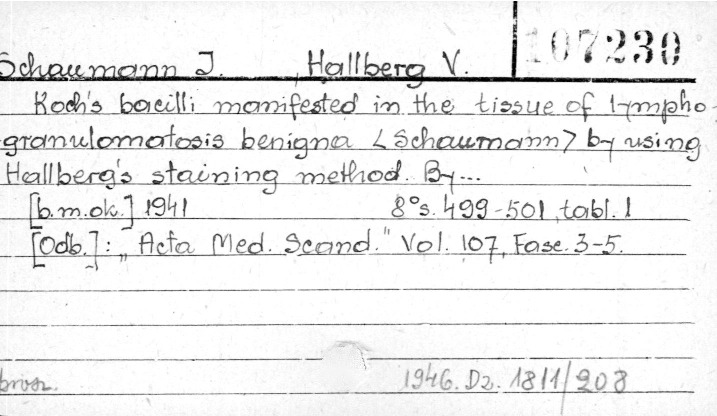 107230
Schaumann J. , Hallberg V.
Koch's bacilli manifested in the tissue of lympho-
granulomatosis benigna <Schaumann> by using
Hallberg's staining method. By...
[b.m.ok.] 1941 8° s. 499-501, tabl. 1
[Odb.]: „Acta Med. Scand." Vol. 107, Fasc. 3-5.
brosz. 1946. Dz. 1811/208